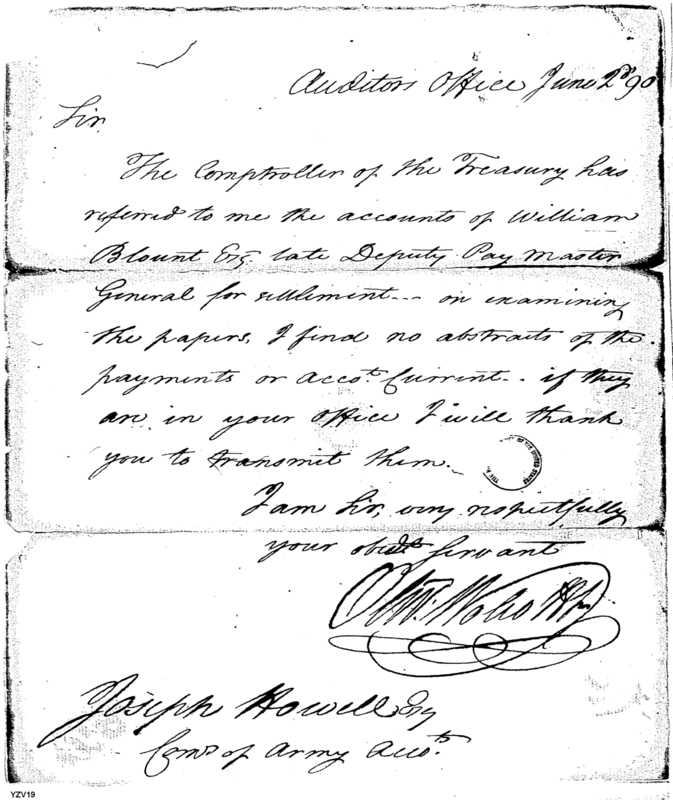 Auditors Office June 2d 90
Sir
The Comptroller of the Treasury has
referred to me the accounts of William
Blount Esq. late Deputy Pay Master
General for settlement... on examining
the papers, I find no abstraits of the
payments or accots. Current.. if they
are in your office I will thank
you to transmit them.
I am Sir, very respectfully
your obedt. Servant
Olivr. Wolcott Jr.
Joseph Howell Esq
Comr. of Army Accots.
OF THE UNITED STATES
YZV19